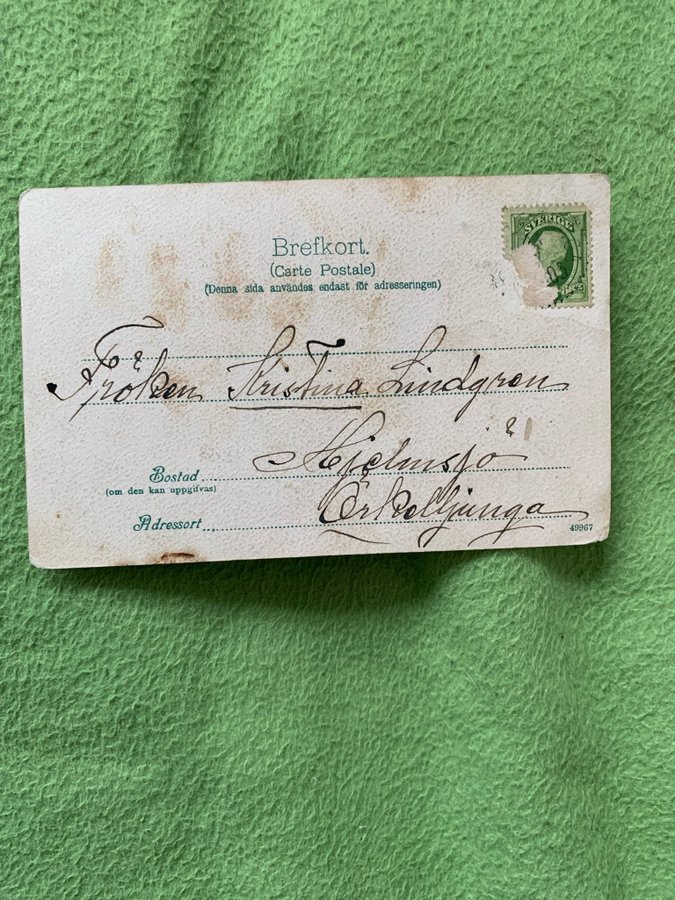 SVERIGE
Brefkort.
(Carte Postale)
(Denna sida användes endast för adresseringen)
Fröken Kristina Lindgren
Bostad
Hjelmsjö
(om den kan uppgifvas)
Adressort
Örkelljunga
49967